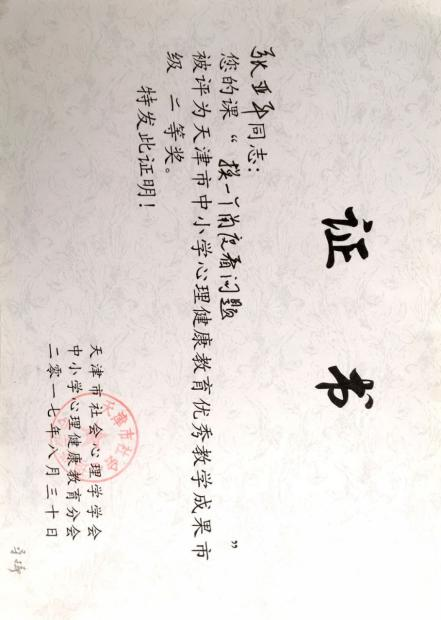 证书
张亚平同志：
您的课“换一个角度看问题”
被评为天津市中小学心理健康教育优秀教学成果市
级 二等奖。
特发此证明！
天津市社会心理学学会
中小学心理健康教育分会
二零一七年八月三十日